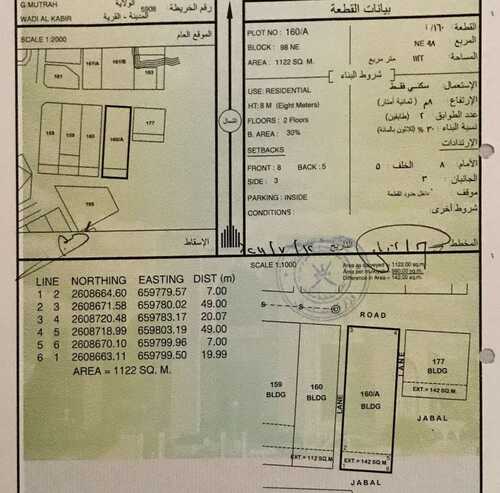 G.MUTRAH
الولاية
رقم الخريطة
5908
WADI AL KABIR
المدينة - القرية
SCALE 1:2000
الموقع العام
161
160/A
163
159
160
160/A
177
195
الإسقاط
الشمال
بيانات القطعة
PLOT NO : 160/A
القطعة : ١٦٠/أ
BLOCK : 98 NE
المربع NE ٩٨
AREA : 1122 SQ. M.
المساحة: ١١٢٢ متر مربع
شروط البناء
USE: RESIDENTIAL
الإستعمال: سكني فقط
HT: 8 M (Eight Meters)
الإرتفاع ٨م (ثمانية أمتار)
FLOORS : 2 Floors
عدد الطوابق ٢ (طابقين)
B. AREA : 30%
نسبة البناء ٣٠ % (ثلاثون بالمائة)
SETBACKS
الإرتدادات
FRONT : 8 BACK : 5
الأمام ٨ الخلف: ٥
SIDE : 3
الجانبان ٣
PARKING : INSIDE
موقف داخل حدود القطعة
CONDITIONS :
شروط أخرى:
المخطط
التاريخ
LINE NORTHING EASTING DIST (m)
1 2 2608664.60 659779.57 7.00
2 3 2608671.58 659780.02 49.00
3 4 2608720.48 659783.17 20.07
4 5 2608718.99 659803.19 49.00
5 6 2608670.10 659799.96 7.00
6 1 2608663.11 659799.50 19.99
AREA = 1122 SQ. M.
SCALE 1:1000
Area as surveyed : 1122.00 sq.m.
Area per mulkiyah : 980.00 sq.m.
Difference in Area = 142.00 sq.m.
S
S
ROAD
3
4
LANE
177
BLDG
EXT = 42 SQ.M.
159
BLDG
160
BLDG
160/A
BLDG
LANE
JABAL
EXT = 112 SQ.M.
2
5
EXT = 142 SQ.M.
1
6
JABAL